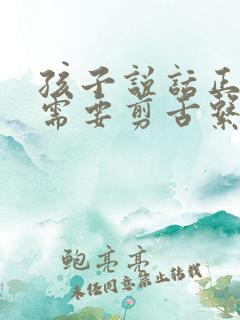 孩子説話正
需要剪舌繫
鲍亮亮
未经同意禁止转载